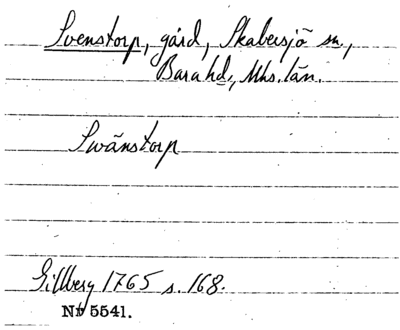 Svenstorp, gård, Skabersjö sn,
Bara hd., Mhs. län.
Swänstorp
Gillberg 1765 s. 168.
Nb 5541.